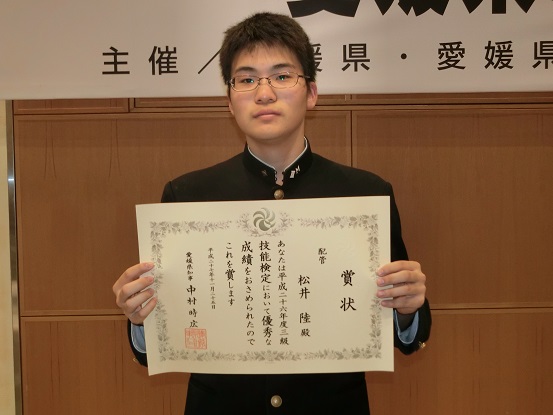 愛媛県
主催／愛媛県・愛媛県
賞状
配管
松井 陸 殿
あなたは平成二十六年度三級
技能検定において優秀な
成績をおさめられたので
これを賞します
平成二十七年十一月二十五日
愛媛県知事 中村時広